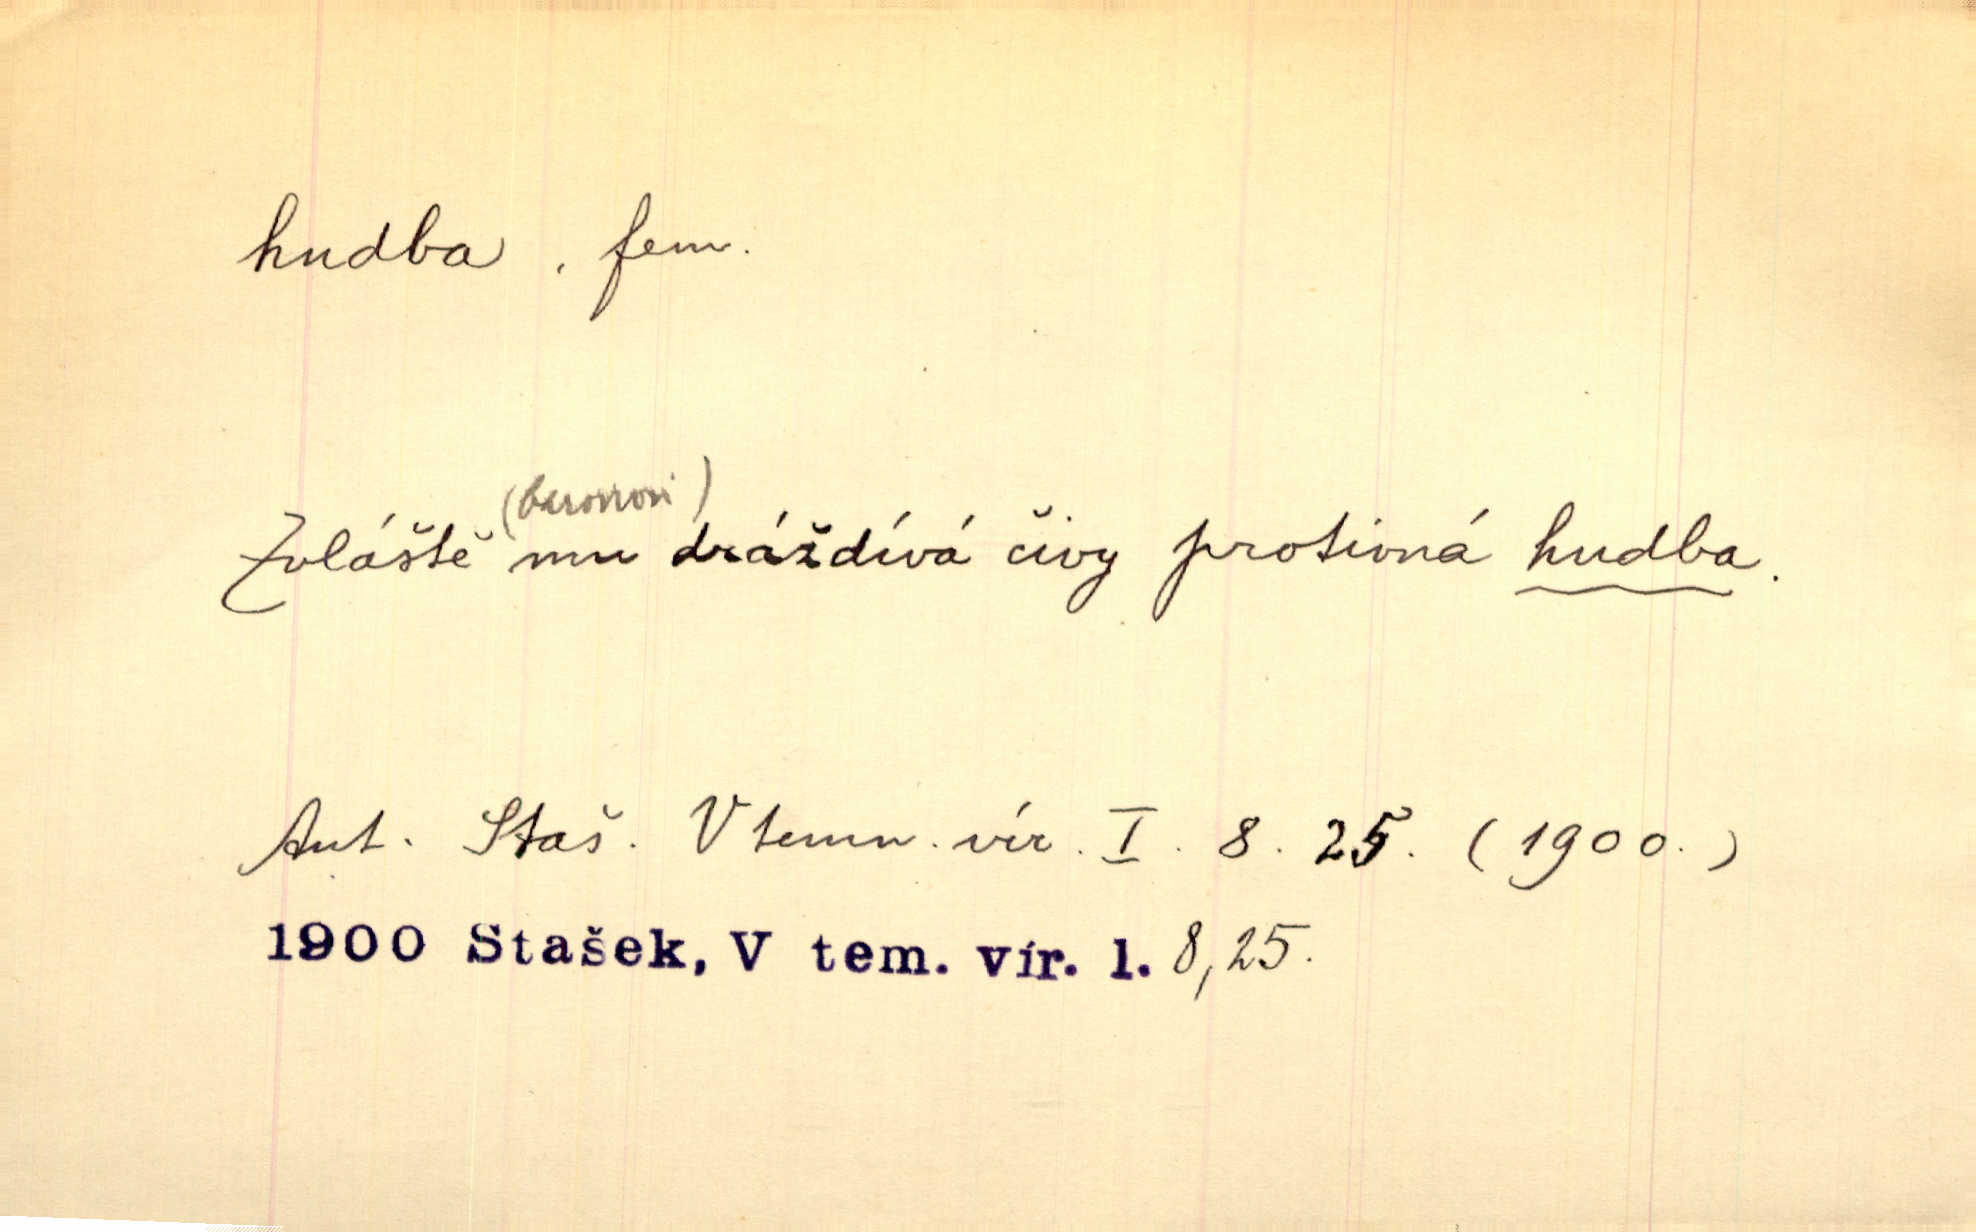 hudba, fem.
(baronovi)
Zvláště mu dráždívá čivy protivná hudba.
Ant. Staš. V temn. vír. I. 8. 25. (1900.)
1900 Stašek, V tem. vír. 1. 8, 25.